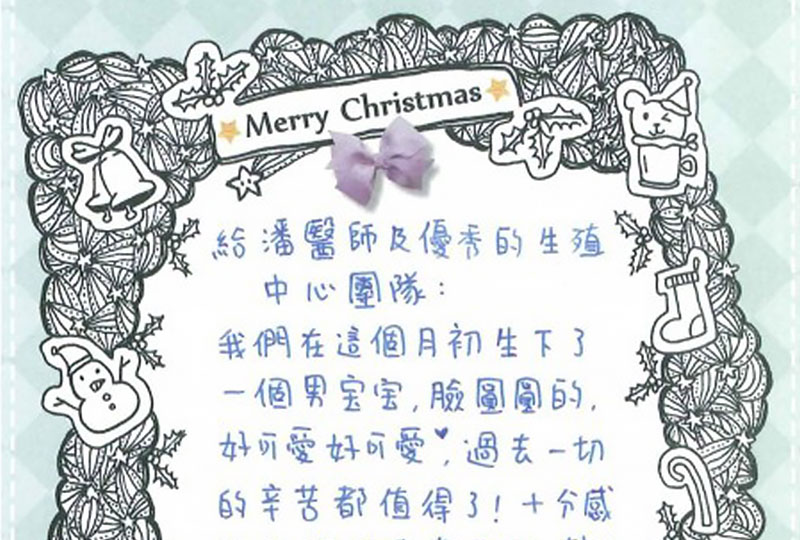 Merry Christmas
給潘醫師及優秀的生殖
中心團隊:
我們在這個月初生下了
一個男宝宝,臉圓圓的,
好可愛好可愛♥,過去一切
的辛苦都值得了!十分感